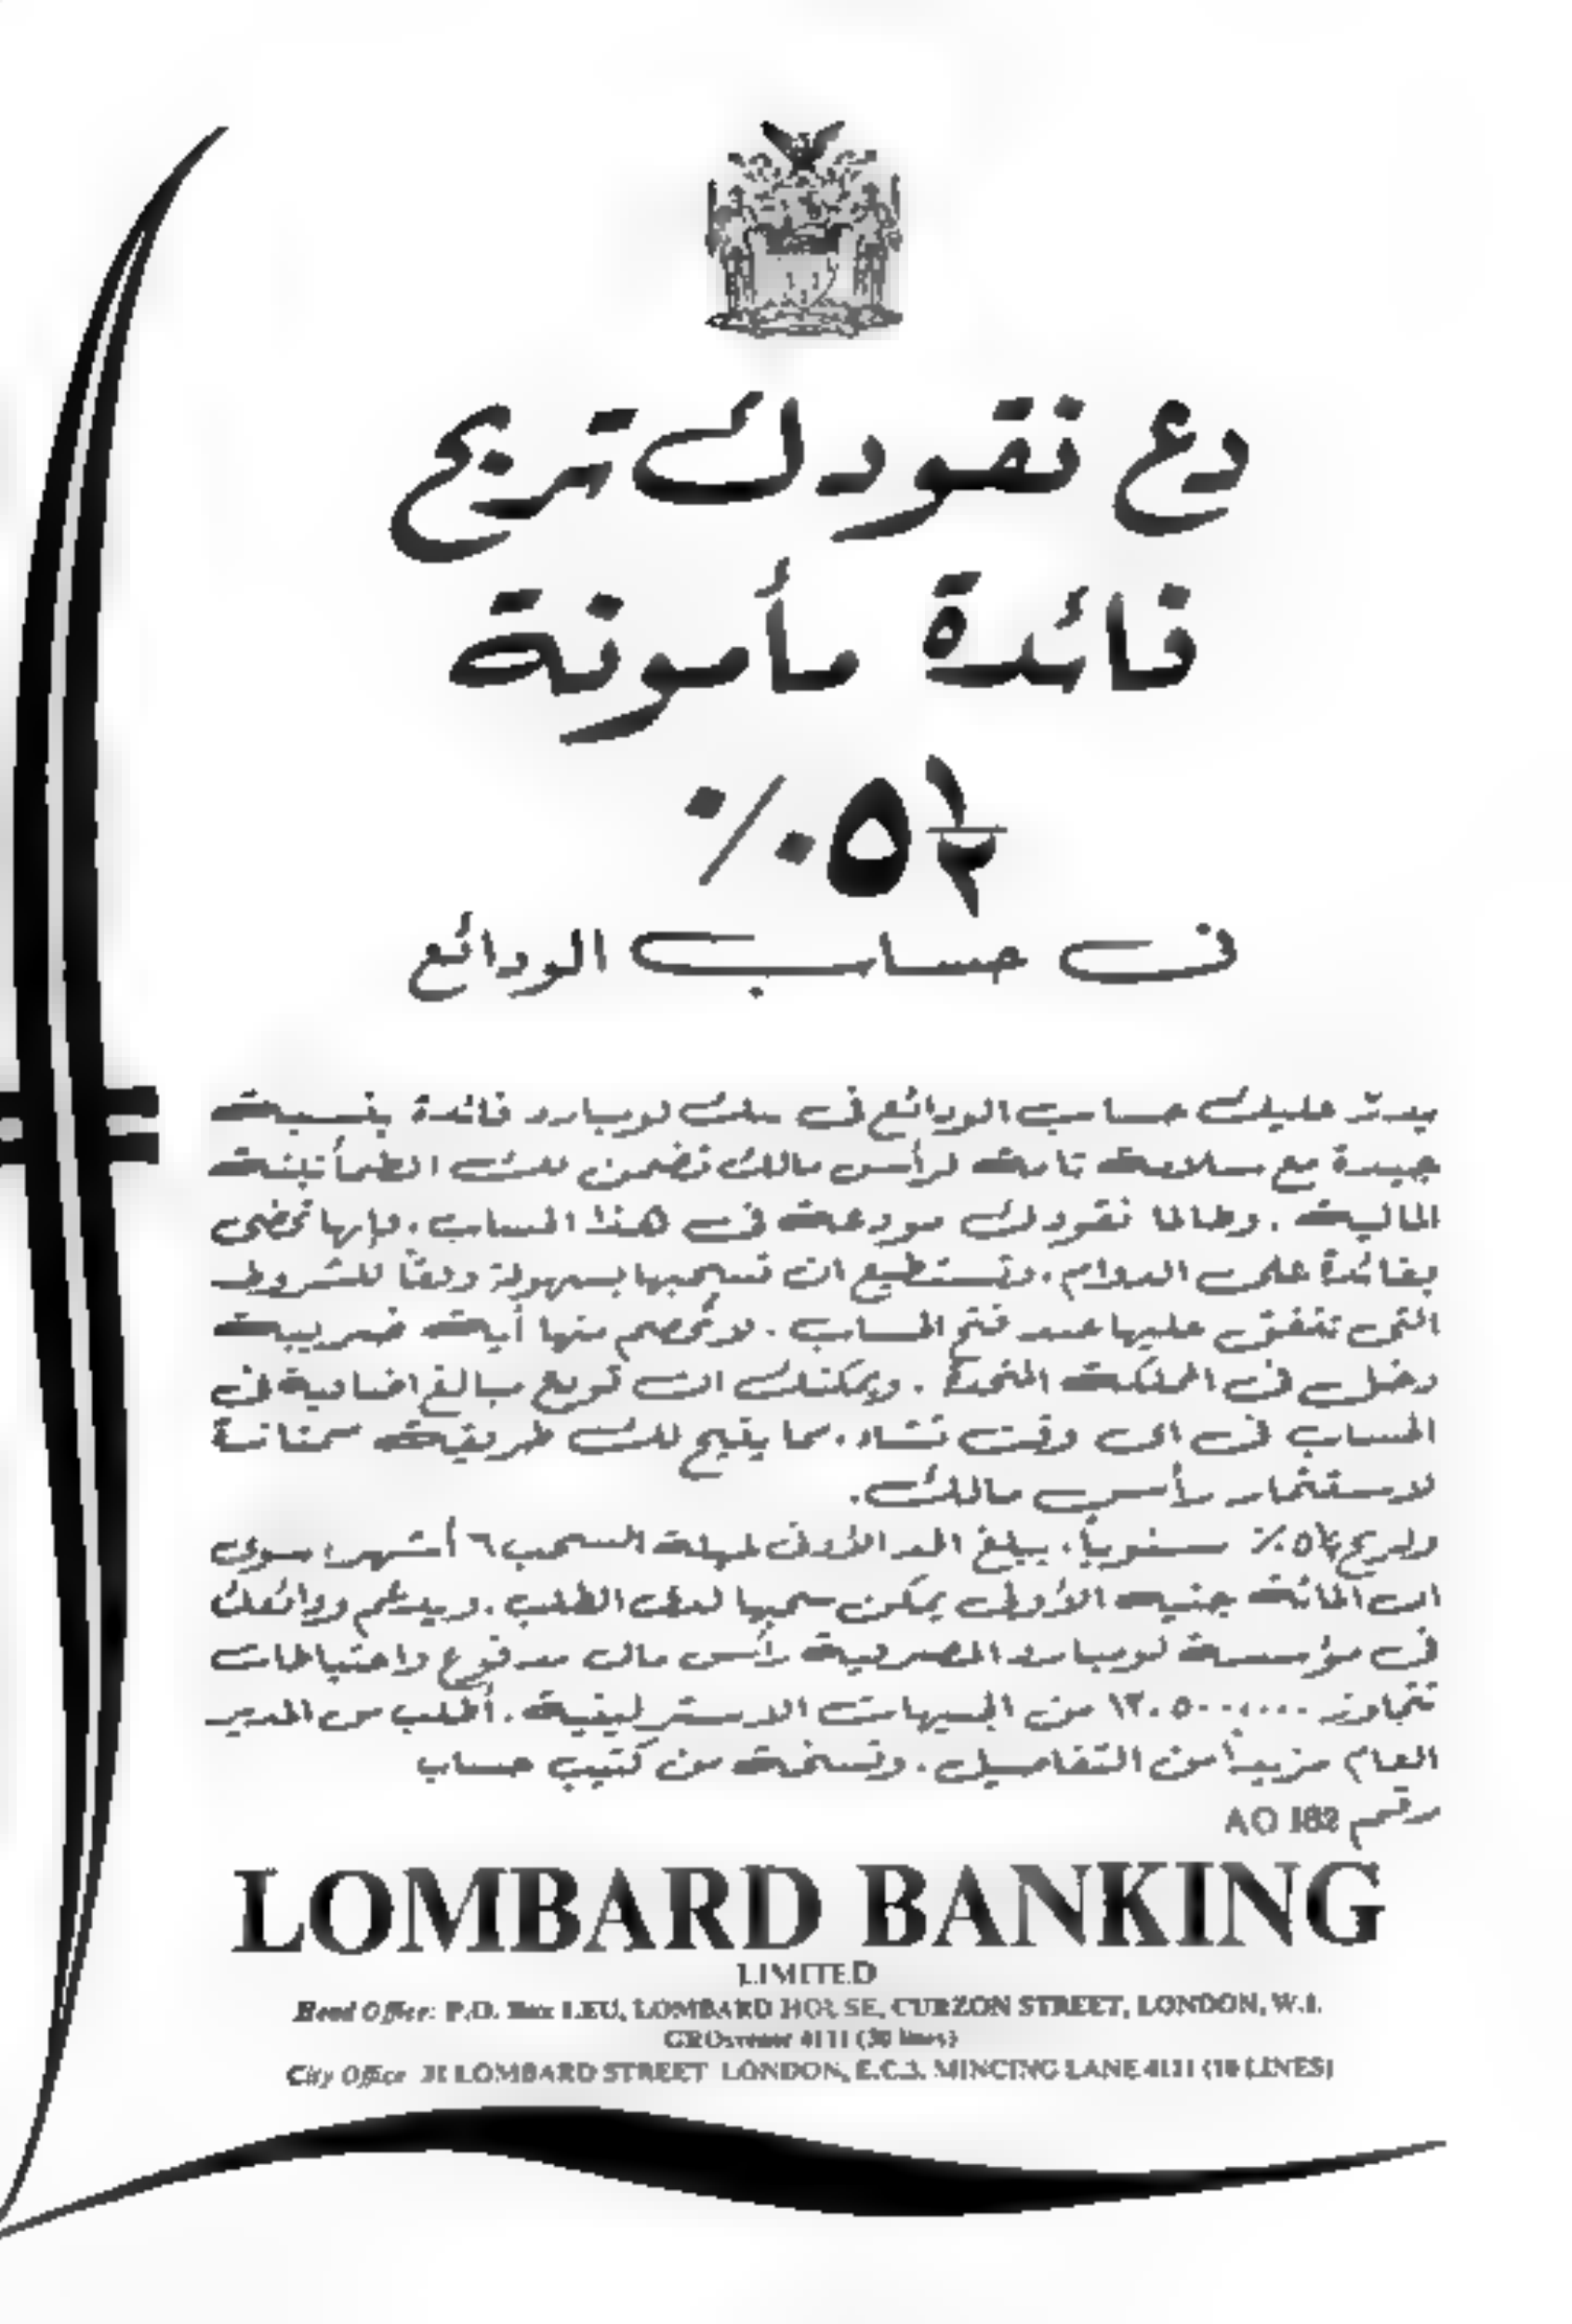 دع نقودك تربح
فائدة مأمونة
٥½٪
في حساب الودائع
يدر عليك حساب الودائع في بنك لومبارد فائدة بنسبة
جيدة مع سلامة تامة لرأس مالك تضمن لك الطمأنينة
المالية . وطالما نقودك مودعة في هذا الحساب ، فإنها تحضى
بفائدة على الدوام ، وتستطيع ان تسحبها بسهولة وفقاً للشروط
التي تتفق عليها عند فتح الحساب . لا تخصم منها أية ضريبة
دخل في المملكة المتحدة . ويمكنك ان تودع مبالغ اضافية في
الحساب في اي وقت تشاء ، مما يتيح لك طريقة ممتازة
لاستثمار رأس مالك .
٥½٪ سنوياً ، يبلغ الحد الأدنى لمهلة السحب ٦ أشهر ، سوى
ان المائة جنيه الأولى يمكن سحبها لدى الطلب . ويدعم ودائعك
في مؤسسة لومبارد المصرفية رأس مال مدفوع واحتياطات
تتجاوز من الجنيهات الاسترلينية . أطلب من المدير
العام مزيداً من التفاصيل ، ونسخة من كتيب حساب
رقم AO 182
LOMBARD BANKING
LIMITED
Head Office: P.O. Box LEU, LOMBARD HOUSE, CURZON STREET, LONDON, W.1.
GROsvenor 4111 (30 lines)
City Office 31 LOMBARD STREET LONDON, E.C.3. MINCING LANE 4111 (10 LINES)